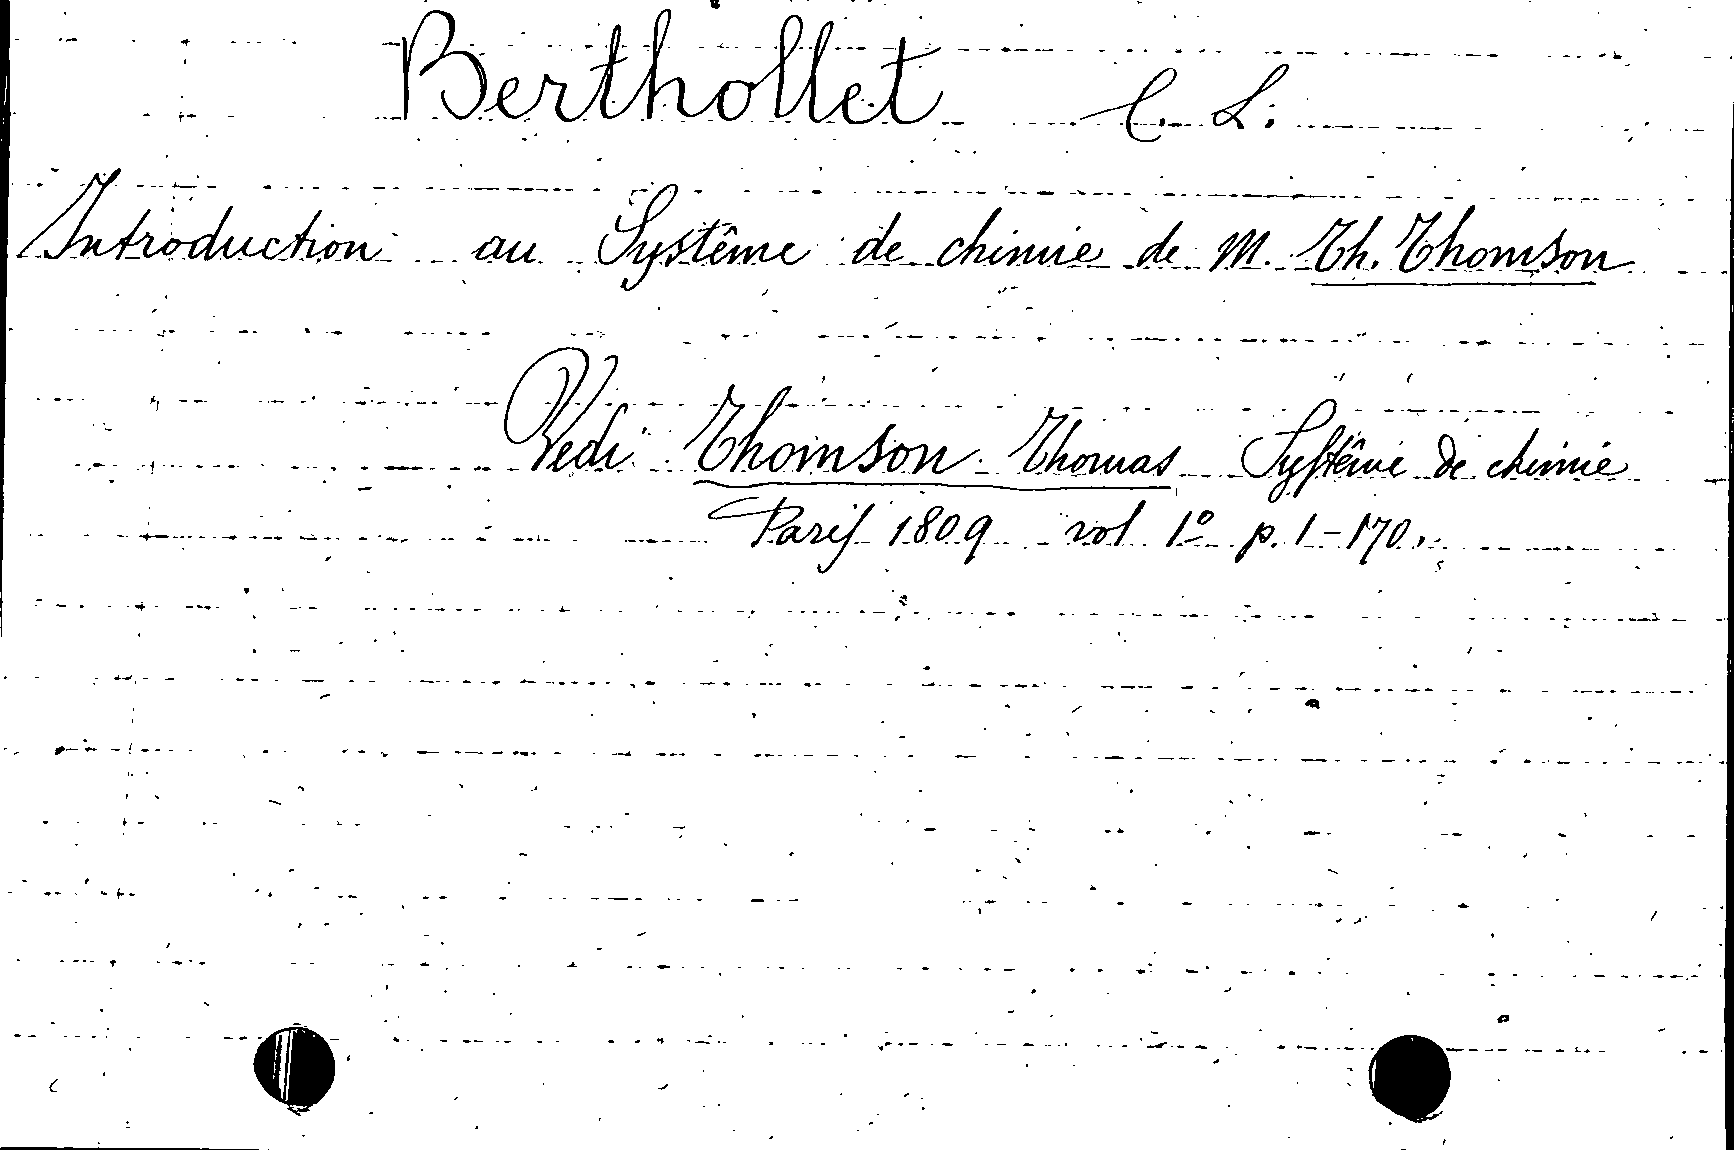 Berthollet C. L.
Introduction au Systême de chimie de M. Th. Thomson
Vedi Thomson Thomas Systême de chimie
Paris 1809 vol 1º p. 1-170.